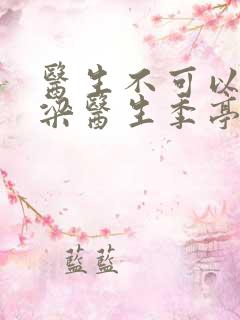 醫生不可以
梁醫生季亭
藍藍